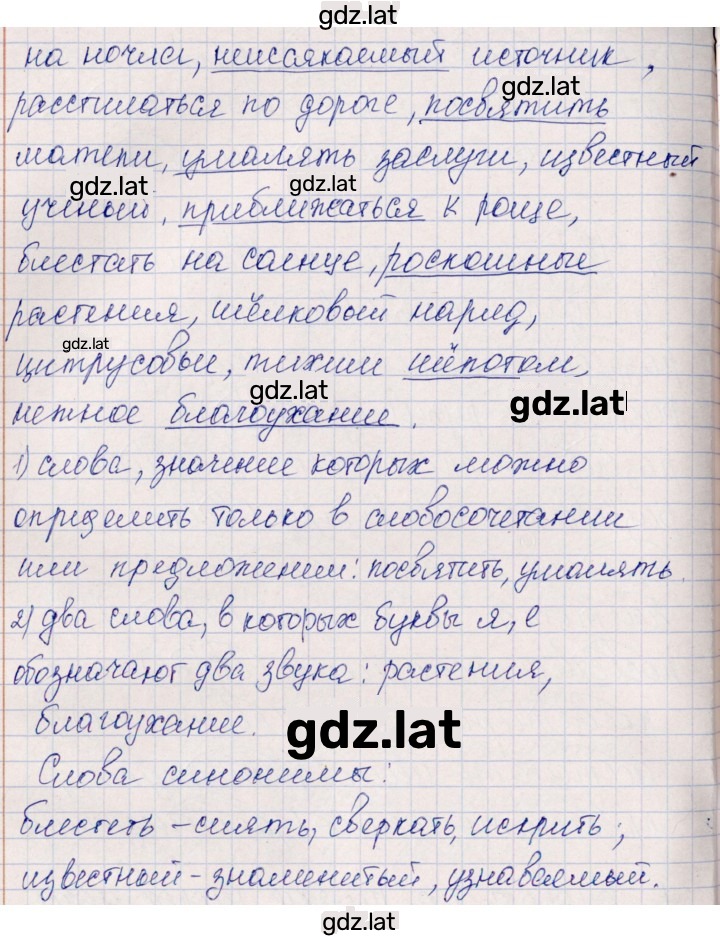 gdz.lat
на ночлег, неиссякаемый источник,
gdz.lat
расстилаться по дороге, посвятить
матери, умалять заслуги, известный
gdz.lat gdz.lat
учёный, приближаться к роще,
блестать на солнце, роскошные
растения, шёлковый наряд,
gdz.lat
цитрусовые, тихим шёпотом,
gdz.lat gdz.lat
нежное благоухание.
1) слова, значение которых можно
определить только в словосочетании
или предложении: посвятить, умалять.
2) два слова, в которых буквы я, е
обозначают два звука: растения,
благоухание.
gdz.lat
Слова синонимы:
блестеть – сиять, сверкать, искрить;
известный – знаменитый, узнаваемый.
gdz.lat